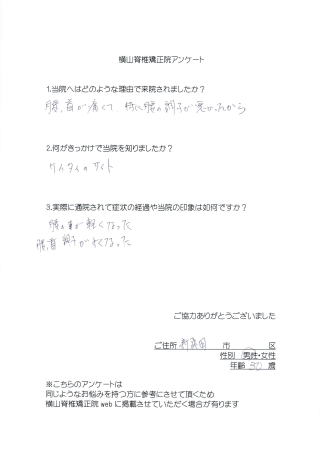 横山脊椎矯正院アンケート
1.当院へはどのような理由で来院されましたか?
腰、首が痛くて 特に腰の調子が悪かったから
2.何がきっかけで当院を知りましたか?
ケイタイのサイト
3.実際に通院されて症状の経過や当院の印象は如何ですか?
が軽くなった
腰、首 調子がよくなった
ご協力ありがとうございました
ご住所 市 区
性別 男性・女性
年齢 30 歳
※こちらのアンケートは
同じようなお悩みを持つ方に参考にさせて頂くため
横山脊椎矯正院 web に掲載させていただく場合が有ります